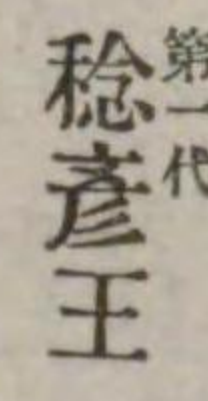 第一代
稔彥王